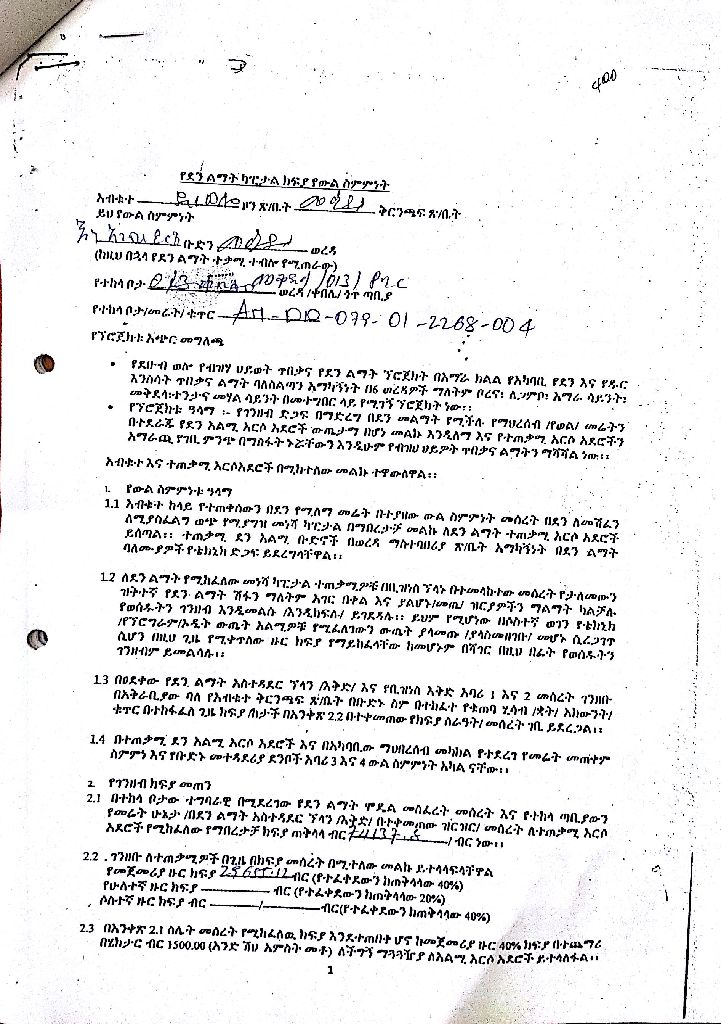 400
የደን ልማት ካፒታል ክፍያ የውል ስምምነት
አብቁተ ዞን ጽ/ቤት ቅርንጫፍ ጽ/ቤት
ይህ የውል ስምምነት
ቡድን ወረዳ
(ከዚህ በኋላ የደን ልማት ተቃሚ ተብሎ የሚጠራው)
የተከላ ቦታ /013/ ወረዳ /ቀበሌ/ ጎጥ ጣቢያ
የተከላ ቦታ/መሬት/ ቁጥር AM-DD-079-01-2268-004
የፕሮጀክቱ አጭር መግለጫ
• የደቡብ ወሎ የብዝሃ ህይወት ጥበቃና የደን ልማት ፕሮጀክት በአማራ ክልል የአካባቢ የደን እና የዱር
እንስሳት ጥበቃና ልማት ባለስልጣን አማካኝነት በ6 ወረዳዎች ማለትም ቦረና፣ ለጋምቦ፣ አማራ ሳይንት፣
መቅደላ፣ተንታና መሃል ሳይንት በመተግበር ላይ የሚገኝ ፕሮጀክት ነው፡፡
• የፕሮጀክቱ ዓላማ ፡- የገንዘብ ድጋፍ በማድረግ በደን መልማት የሚችሉ የማህበረሰብ /የወል/ መሬትን
በተደራጁ የደን አልሚ አርሶ አደሮች ውጤታማ በሆነ መልኩ እንዲለማ እና የተጠቃሚ አርሶ አደሮችን
አማራጪ የገቢ ምንጭ በማስፋት ኑሯቸውን እንዲሁም የብዝሀ ህይዎት ጥበቃና ልማትን ማሻሻል ነው፡፡
አብቁተ እና ተጠቃሚ አርሶአደሮች በሚከተለው መልኩ ተዋውለዋል፡፡
1. የውል ስምምነቱ ዓላማ
1.1 አብቁተ ከላይ የተጠቀሰውን በደን የሚለማ መሬት በተያዘው ውል ስምምነት መሰረት በደን ለመሸፈን
ለሚያስፈልግ ወጭ የሚያግዝ መነሻ ካፒታል በማበረታቻ መልኩ ለደን ልማት ተጠቃሚ አርሶ አደሮች
ይሰጣል፡፡ ተጠቃሚ ደን አልሚ ቡድኖች በወረዳ ማስተባበሪያ ጽ/ቤት አማካኝነት በደን ልማት
ባለሙያዎች የቴክኒክ ድጋፍ ይደረግላቸዋል፡፡
1.2 ለደን ልማት የሚከፈለው መነሻ ካፒታል ተጠቃሚዎቹ በቢዝነስ ፕላኑ በተመላከተው መሰረት የታለመውን
ዝቅተኛ የደን ልማት ሽፋን ማለትም አገር በቀል እና ያልሆኑ/መጤ/ ዝርያዎችን ማልማት ካልቻሉ
የወሰዱትን ገንዘብ እንዲመልሱ /እንዲከፍሉ/ ይገደዳሉ፡፡ ይህም የሚሆነው በሶስተኛ ወገን የቴክኒክ
/የፕሮግራም/ኦዲት ውጤት አልሚዎቹ የሚፈለገውን ውጤት ያላመጡ /ያላስመዘገቡ/ መሆኑ ሲረጋገጥ
ሲሆን በዚህ ጊዜ የሚቀጥለው ዙር ክፍያ የማይከፈላቸው ከመሆኑም በሻገር በዚህ በፊት የወሰዱትን
ገንዘብም ይመልሳሉ፡፡
1.3 በፀደቀው የደን ልማት አስተዳደር ፕላን /እቅድ/ እና የቢዝነስ እቅድ አባሪ 1 እና 2 መሰረት ገንዘቡ
በአቅራቢያው ባለ የአብቁተ ቅርንጫፍ ጽ/ቤት በቡድኑ ስም በተከፈተ የቁጠባ ሂሳብ /ቋት/ አካውንት/
ቁጥር በተከፋፈለ ጊዜ ክፍያ /ኡታች በአንቀጽ 2.2 በተቀመጠው የክፍያ ስራዓት/ መሰረት ገቢ ይደረጋል፡፡
1.4 በተጠቃሚ ደን አልሚ አርሶ አደሮች እና በአካባቢው ማህበረሰብ መካከል የተደረገ የመሬት መጠቀም
ስምምነ እና የቡድኑ መተዳደሪያ ደንቦች አባሪ 3 እና 4 ውል ስምምነት አካል ናቸው፡፡
2. የገንዘብ ክፍያ መጠን
2.1 በተከላ ቦታው ተግባራዊ በሚደረገው የደን ልማት ሞዴል መስፈረት መሰረት እና የተከላ ጣቢያውን
የመሬት ሁኔታ /በደን ልማት አስተዳደር ፕላን /እቅድ/ በተቀመጠው ዝርዝር/ መሰረት ለተጠቃሚ አርሶ
አደሮች የሚከፈለው የማበረታቻ ክፍያ ጠቅላላ ብር 74137.8 / ብር ነው፡፡
2.2 . ገንዘቡ ለተጠቃሚዎች በጊዜ በክፍያ መሰረት በሚተለው መልኩ ይተላላፍላቸዋል
የመጀመሪያ ዙር ክፍያ 29655.12 ብር (የተፈቀደውን ከጠቅላላው 40%)
የሁለተኛ ዙር ክፍያ ብር (የተፈቀደውን ከጠቅላላው 20%)
ሶስተኛ ዙር ክፍያ ብር / ብር(የተፈቀደውን ከጠቅላላው 40%)
2.3 በአንቀጽ 2.1 ስሌት መሰረት የሚከፈለዉ ክፍያ እንደተጠበቀ ሆኖ ከመጀመሪያ ዙር 40% ክፍያ በተጨማሪ
በሄክታር ብር 1500.00 (አንድ ሽህ አምስት መቶ) ለችግኝ ማጓጓዣያ ለአልሚ አርሶ አደሮች ይተላለፋል፡፡
1